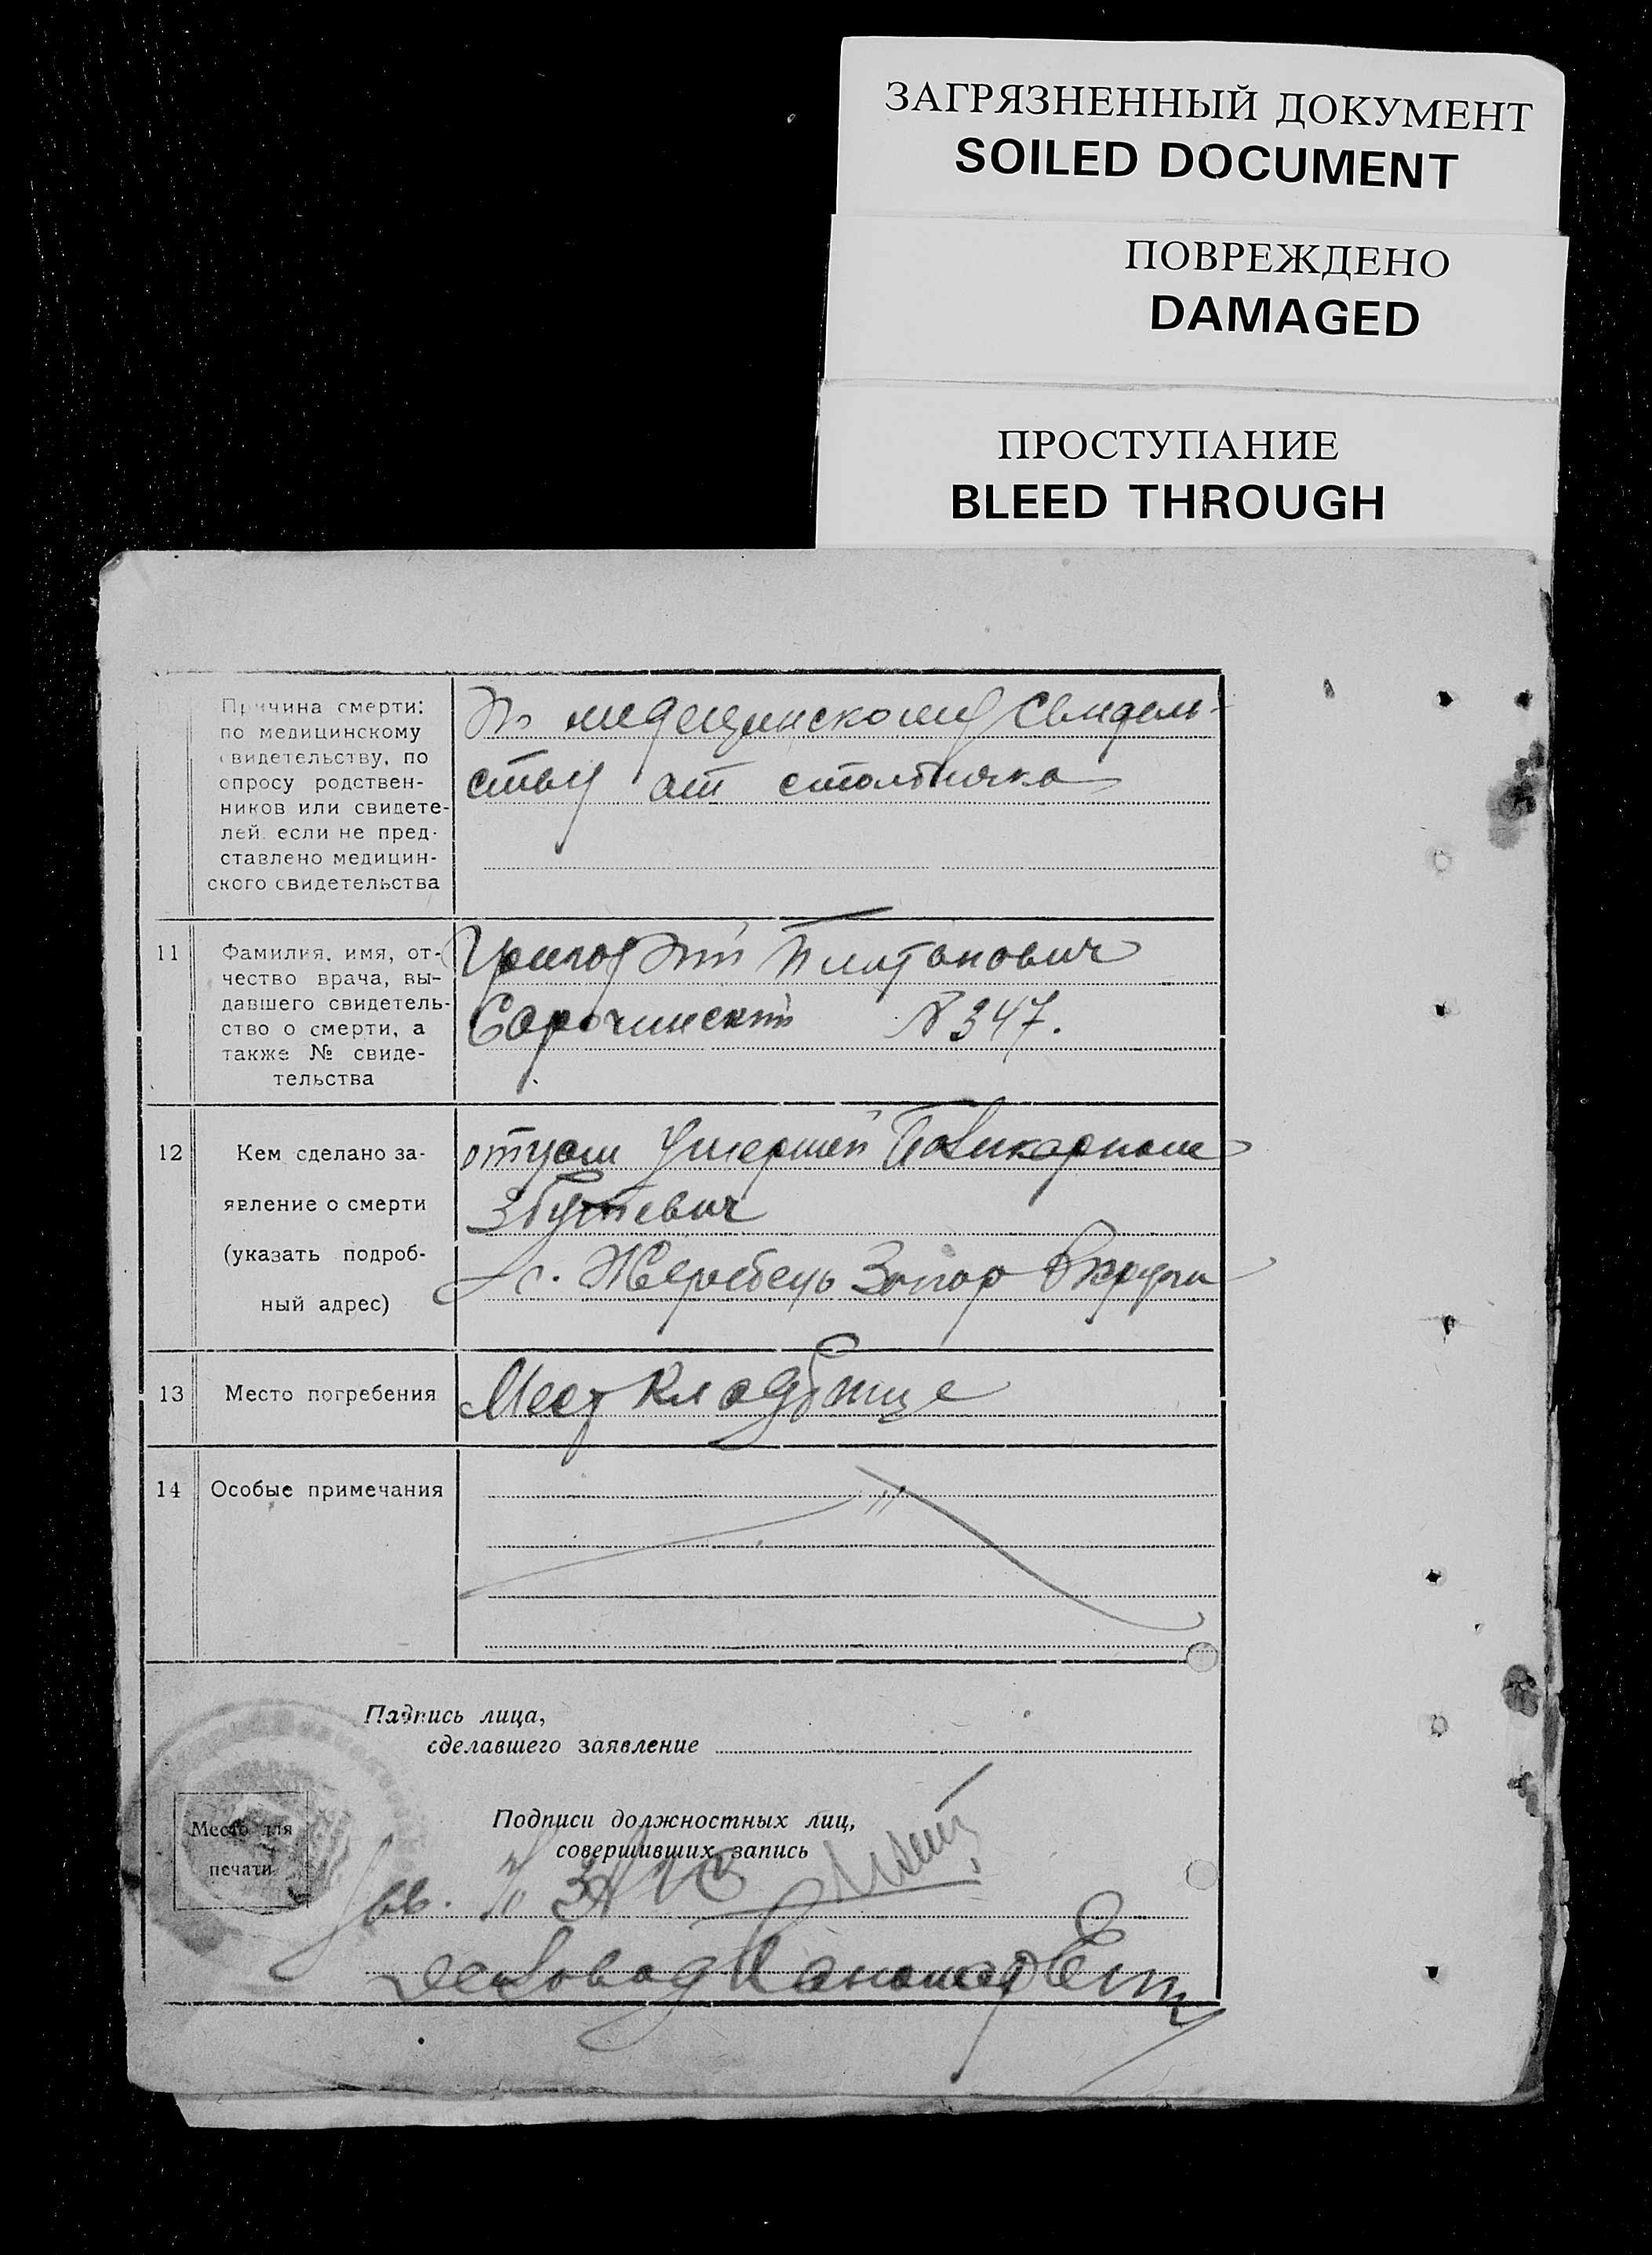 ЗАГРЯЗНЕННЫЙ ДОКУМЕНТ
SOILED DOCUMENT
ПОВРЕЖДЕНО
DAMAGED
ПРОСТУПАНИЕ
BLEED THROUGH
Причина смерти:
по медицинскому
свидетельству, по
опросу родствен-
ников или свидете-
лей если не пред-
ставлено медицин-
ского свидетельства
По медецинскому свидетель-
ству от столбняка
11
Фамилия, имя, от-
чество врача, вы-
давшего свидетель-
ство о смерти, а
также № свиде-
тельства
Григорий
Сорочинский №347.
12
Кем сделано за-
явление о смерти
(указать подроб-
ный адрес)
отцом умершей Поликарпом
с. Жеребець Запор Округи
13
Место погребения
Мест кладбище
14
Особые примечания
"
Падпись лица,
сделавшего заявление
Подписи должностных лиц,
совершивших запись
Место для
печати
Зав. П ЗАГС
Деловод